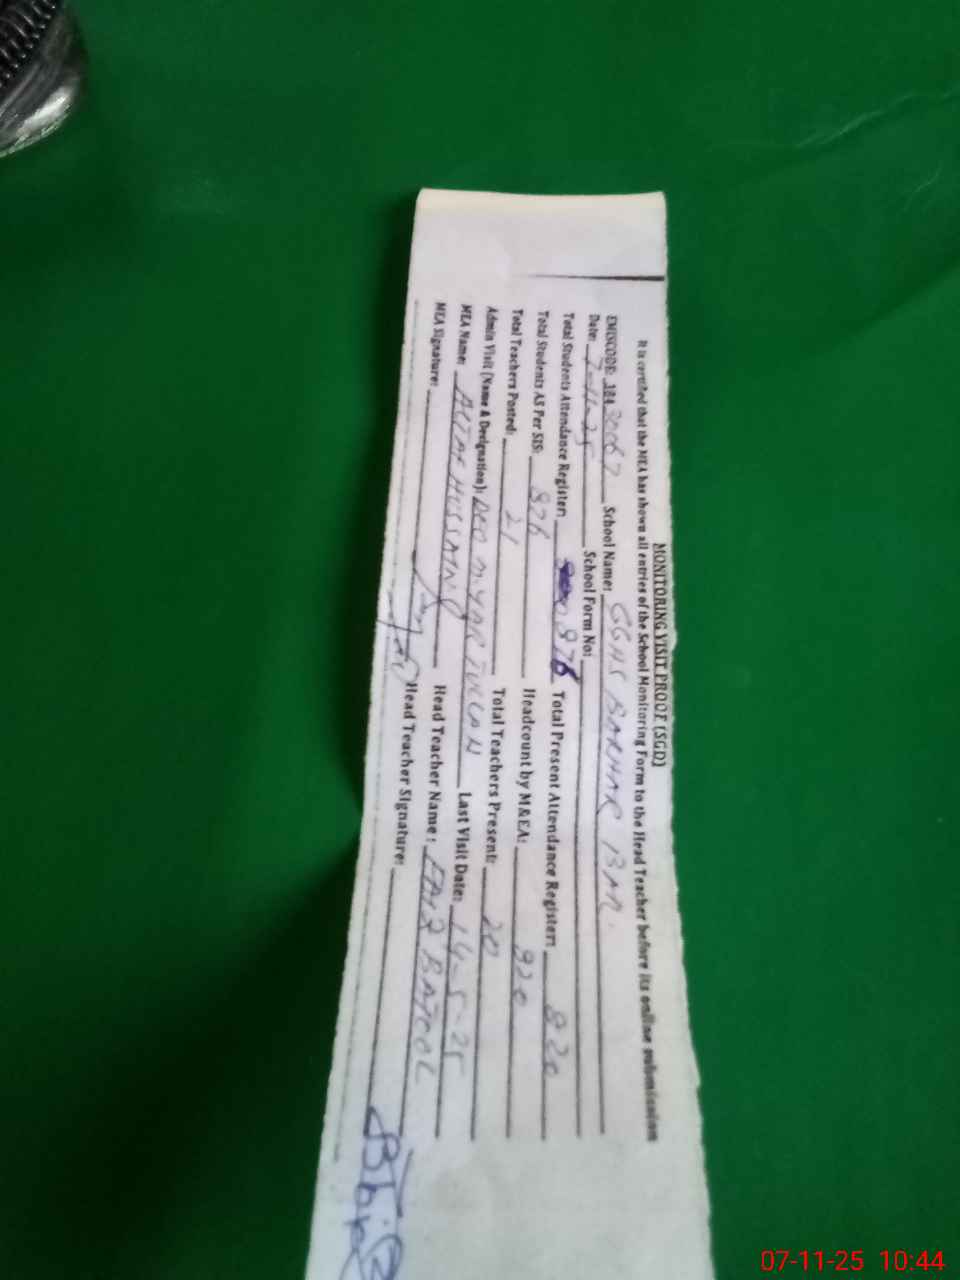 MONITORING VISIT PROOF (SGD)
It is certified that the MEA has shown all entries of the School Monitoring Form to the Head Teacher before its online submission
EMISCODE: 38430067 School Name: GGHS BARHAR BAR.
Date: 7-11-25 School Form No:
Total Students Attendance Register: 876 Total Present Attendance Register: 820
Total Students AS Per SIS: 876 Headcount by M&EA: 820
Total Teachers Posted: 21 Total Teachers Present: 20
Admin Visit (Name & Designation): DEO Last Visit Date: 14-5-25
MEA Name: ALTAF HUSSAIN Head Teacher Name: FAIZ BATOOL
MEA Signature: Head Teacher Signature:
07-11-25 10:44